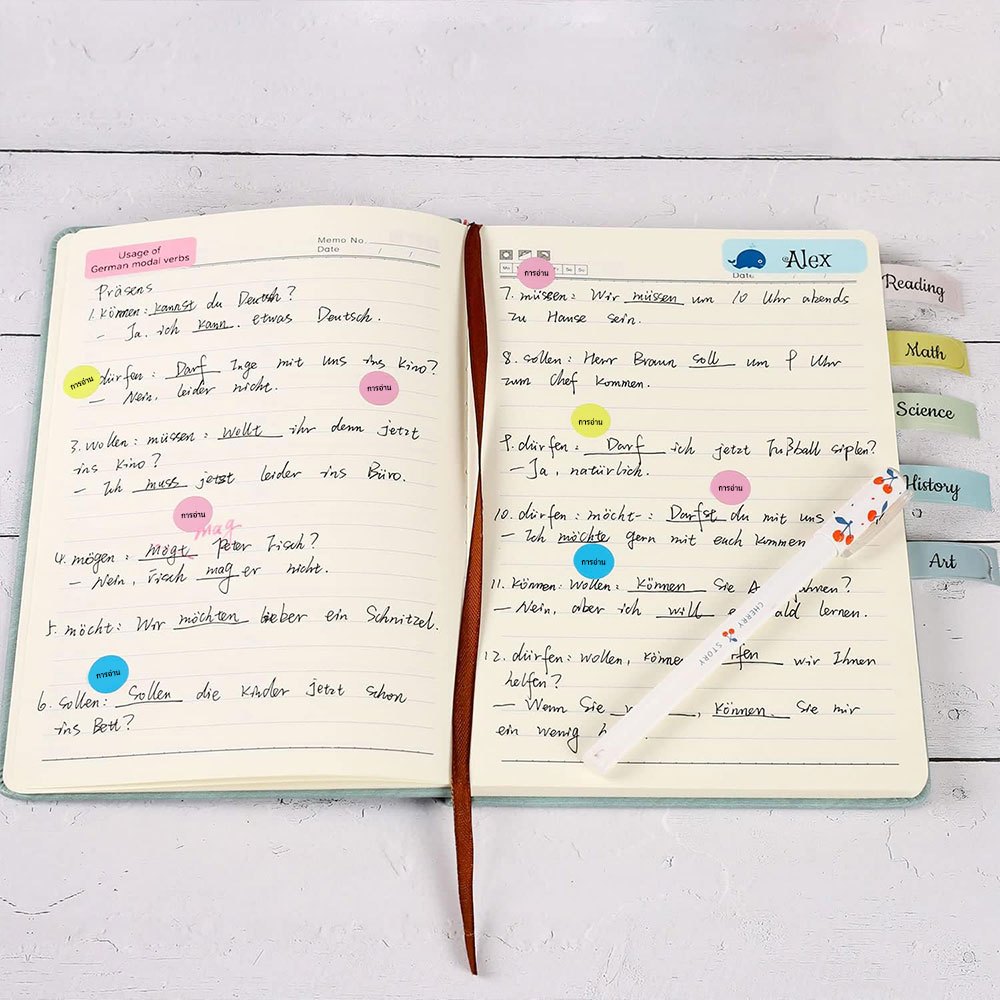 Usage of
German modal verbs
Memo No.
Date / /
Präsens
1. können: kannst du Deutsch?
- Ja, ich kann etwas Deutsch.
dürfen: Darf Inge mit uns ins Kino?
การอ่าน
- Nein, leider nicht.
การอ่าน
3. wollen: müssen: Wollt ihr denn jetzt
ins Kino?
- Ich muss jetzt leider ins Büro.
การอ่าน
mag
4. mögen: Mögt Peter Fisch?
- Nein, Fisch mag er nicht.
5. möcht: Wir möchten lieber ein Schnitzel.
การอ่าน
6. sollen: Sollen die Kinder jetzt schon
ins Bett?
Alex
Date
Mo Fr Sa Su
การอ่าน
7. müssen: Wir müssen um 10 Uhr abends
zu Hause sein.
8. sollen: Herr Braun soll um Uhr
zum Chef kommen.
การอ่าน
9. dürfen: Darf ich jetzt Fußball siplen?
- Ja, natürlich.
การอ่าน
10. dürfen: möcht-: Darfst du mit uns
- Ich möchte gern mit euch kommen
การอ่าน
11. können: wollen: Können Sie A
- Nein, aber ich will ald lernen.
12. dürfen: wollen, könne rfen wir Ihnen
helfen?
- Wenn Sie , können Sie mir
ein wenig h
CHERRY STORY
Reading
Math
Science
History
Art